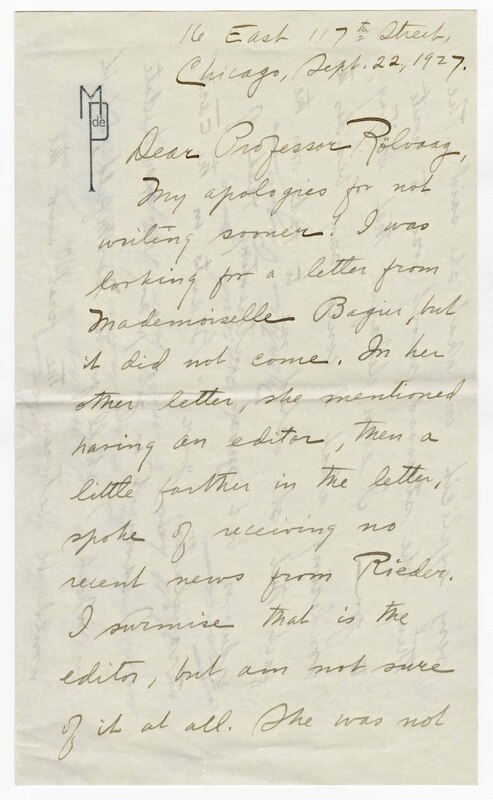 16 East 117th Street,
Chicago, Sept. 22, 1927.
M de P
Dear Professor Rölvaag,
My apologies for not
writing sooner! I was
looking for a letter from
Mademoiselle Bagier, but
it did not come. In her
other letter, she mentioned
having an editor, then a
little farther in the letter,
spoke of receiving no
recent news from Rieder.
I surmise that is the
editor, but am not sure
of it at all. She was not